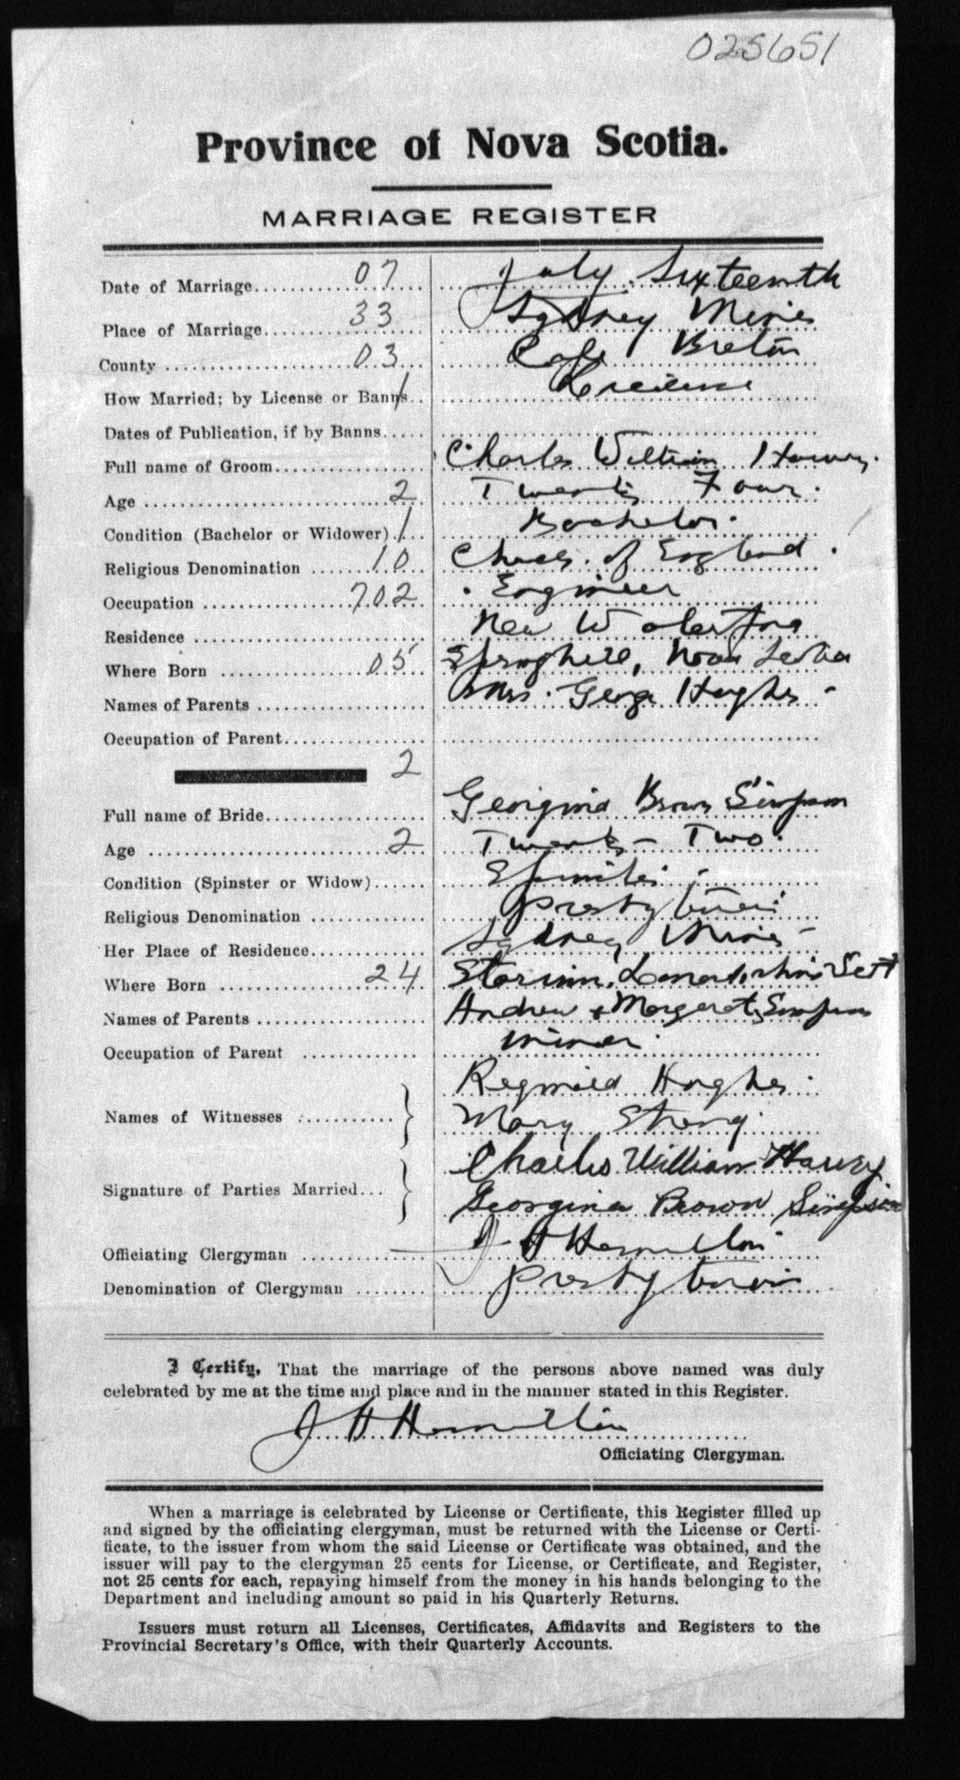 025651
Province of Nova Scotia.
MARRIAGE REGISTER
Date of Marriage 07 July Sixteenth
Place of Marriage 33 Sydney Mines
County 03 Cape Breton
How Married; by License or Banns 1 License
Dates of Publication, if by Banns
Full name of Groom Charles William Harvey.
Age 2 Twenty Four.
Condition (Bachelor or Widower) 1 Bachelor.
Religious Denomination 10 Church of England.
Occupation 702 Engineer
Residence New Waterford
Where Born 05 Springhill, Nova Scotia
Names of Parents Mrs. George Hughes -
Occupation of Parent
2
Full name of Bride Georgina Brown Simpson
Age 2 Twenty - Two.
Condition (Spinster or Widow) Spinster -
Religious Denomination Presbyterian
Her Place of Residence Sydney Mines -
Where Born 24
Names of Parents Andrew + Margaret Simpson
Occupation of Parent miner
Reginald Hughes.
Names of Witnesses Mary Strong
Charles William Harvey
Signature of Parties Married
Georgina Brown Simpson
Officiating Clergyman J H Hamilton
Denomination of Clergyman Presbyterian
I Certify, That the marriage of the persons above named was duly
celebrated by me at the time and place and in the manner stated in this Register.
J H Hamilton
Officiating Clergyman.
When a marriage is celebrated by License or Certificate, this Register filled up
and signed by the officiating clergyman, must be returned with the License or Certi-
ficate, to the issuer from whom the said License or Certificate was obtained, and the
issuer will pay to the clergyman 25 cents for License, or Certificate, and Register,
not 25 cents for each, repaying himself from the money in his hands belonging to the
Department and including amount so paid in his Quarterly Returns.
Issuers must return all Licenses, Certificates, Affidavits and Registers to the
Provincial Secretary's Office, with their Quarterly Accounts.